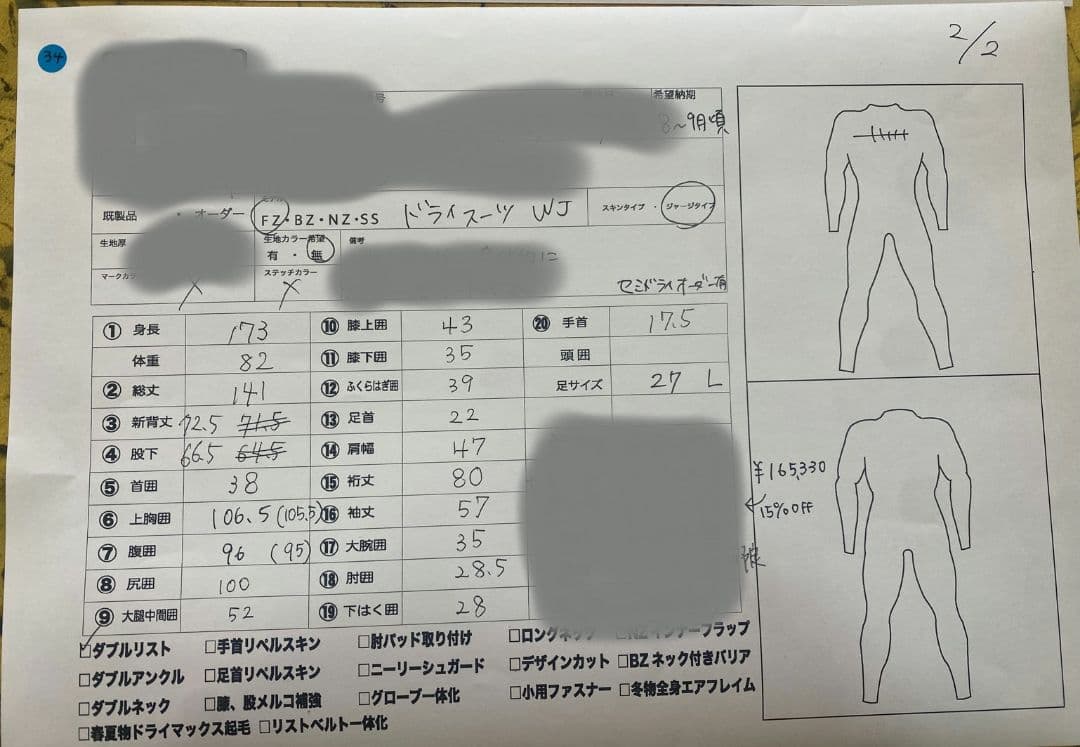 2/2
34
号
希望納期
8~9月頃
既製品 ・ オーダー FZ・BZ・NZ・SS ドライスーツ WJ スキンタイプ ・ ジャージタイプ
生地厚 生地カラー希望 備考
有 ・ 無
マークカラ ステッチカラー
× ×
セミドライオーダー有
① 身長 173 ⑩ 膝上囲 43 ⑳ 手首 17.5
体重 82 ⑪ 膝下囲 35 頭囲
② 総丈 141 ⑫ ふくらはぎ囲 39 足サイズ 27 L
③ 新背丈 72.5 71.5 ⑬ 足首 22
④ 股下 66.5 64.5 ⑭ 肩幅 47
⑤ 首囲 38 ⑮ 裄丈 80
⑥ 上胸囲 106.5 (105.5) ⑯ 袖丈 57
⑦ 腹囲 96 (95) ⑰ 大腕囲 35
⑧ 尻囲 100 ⑱ 肘囲 28.5
⑨ 大腿中間囲 52 ⑲ 下はく囲 28
¥165,330
←15%OFF
様
☑ダブルリスト □手首リペルスキン □肘パッド取り付け □ロングネック □NZインナーフラップ
□ダブルアンクル □足首リペルスキン □ニーリーシュガード □デザインカット □BZネック付きバリア
□ダブルネック □膝、股メルコ補強 □グローブ一体化 □小用ファスナー □冬物全身エアフレイム
□春夏物ドライマックス起毛 □リストベルト一体化